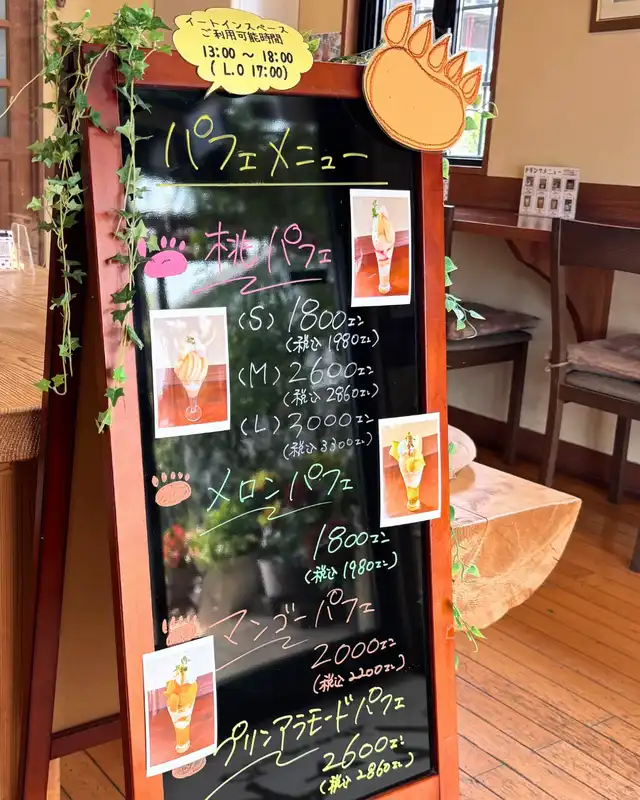 イートインスペース
ご利用可能時間
13:00 ～ 18:00
( L.O 17:00)
パフェメニュー
桃パフェ
(S) 1800エン
(税込 1980エン)
(M) 2600エン
(税込 2860エン)
(L) 3000エン
(税込 3300エン)
メロンパフェ
1800エン
(税込 1980エン)
マンゴーパフェ
2000エン
(税込 2200エン)
プリンアラモードパフェ
2600エン
(税込 2860エン)
ドリンクメニュー